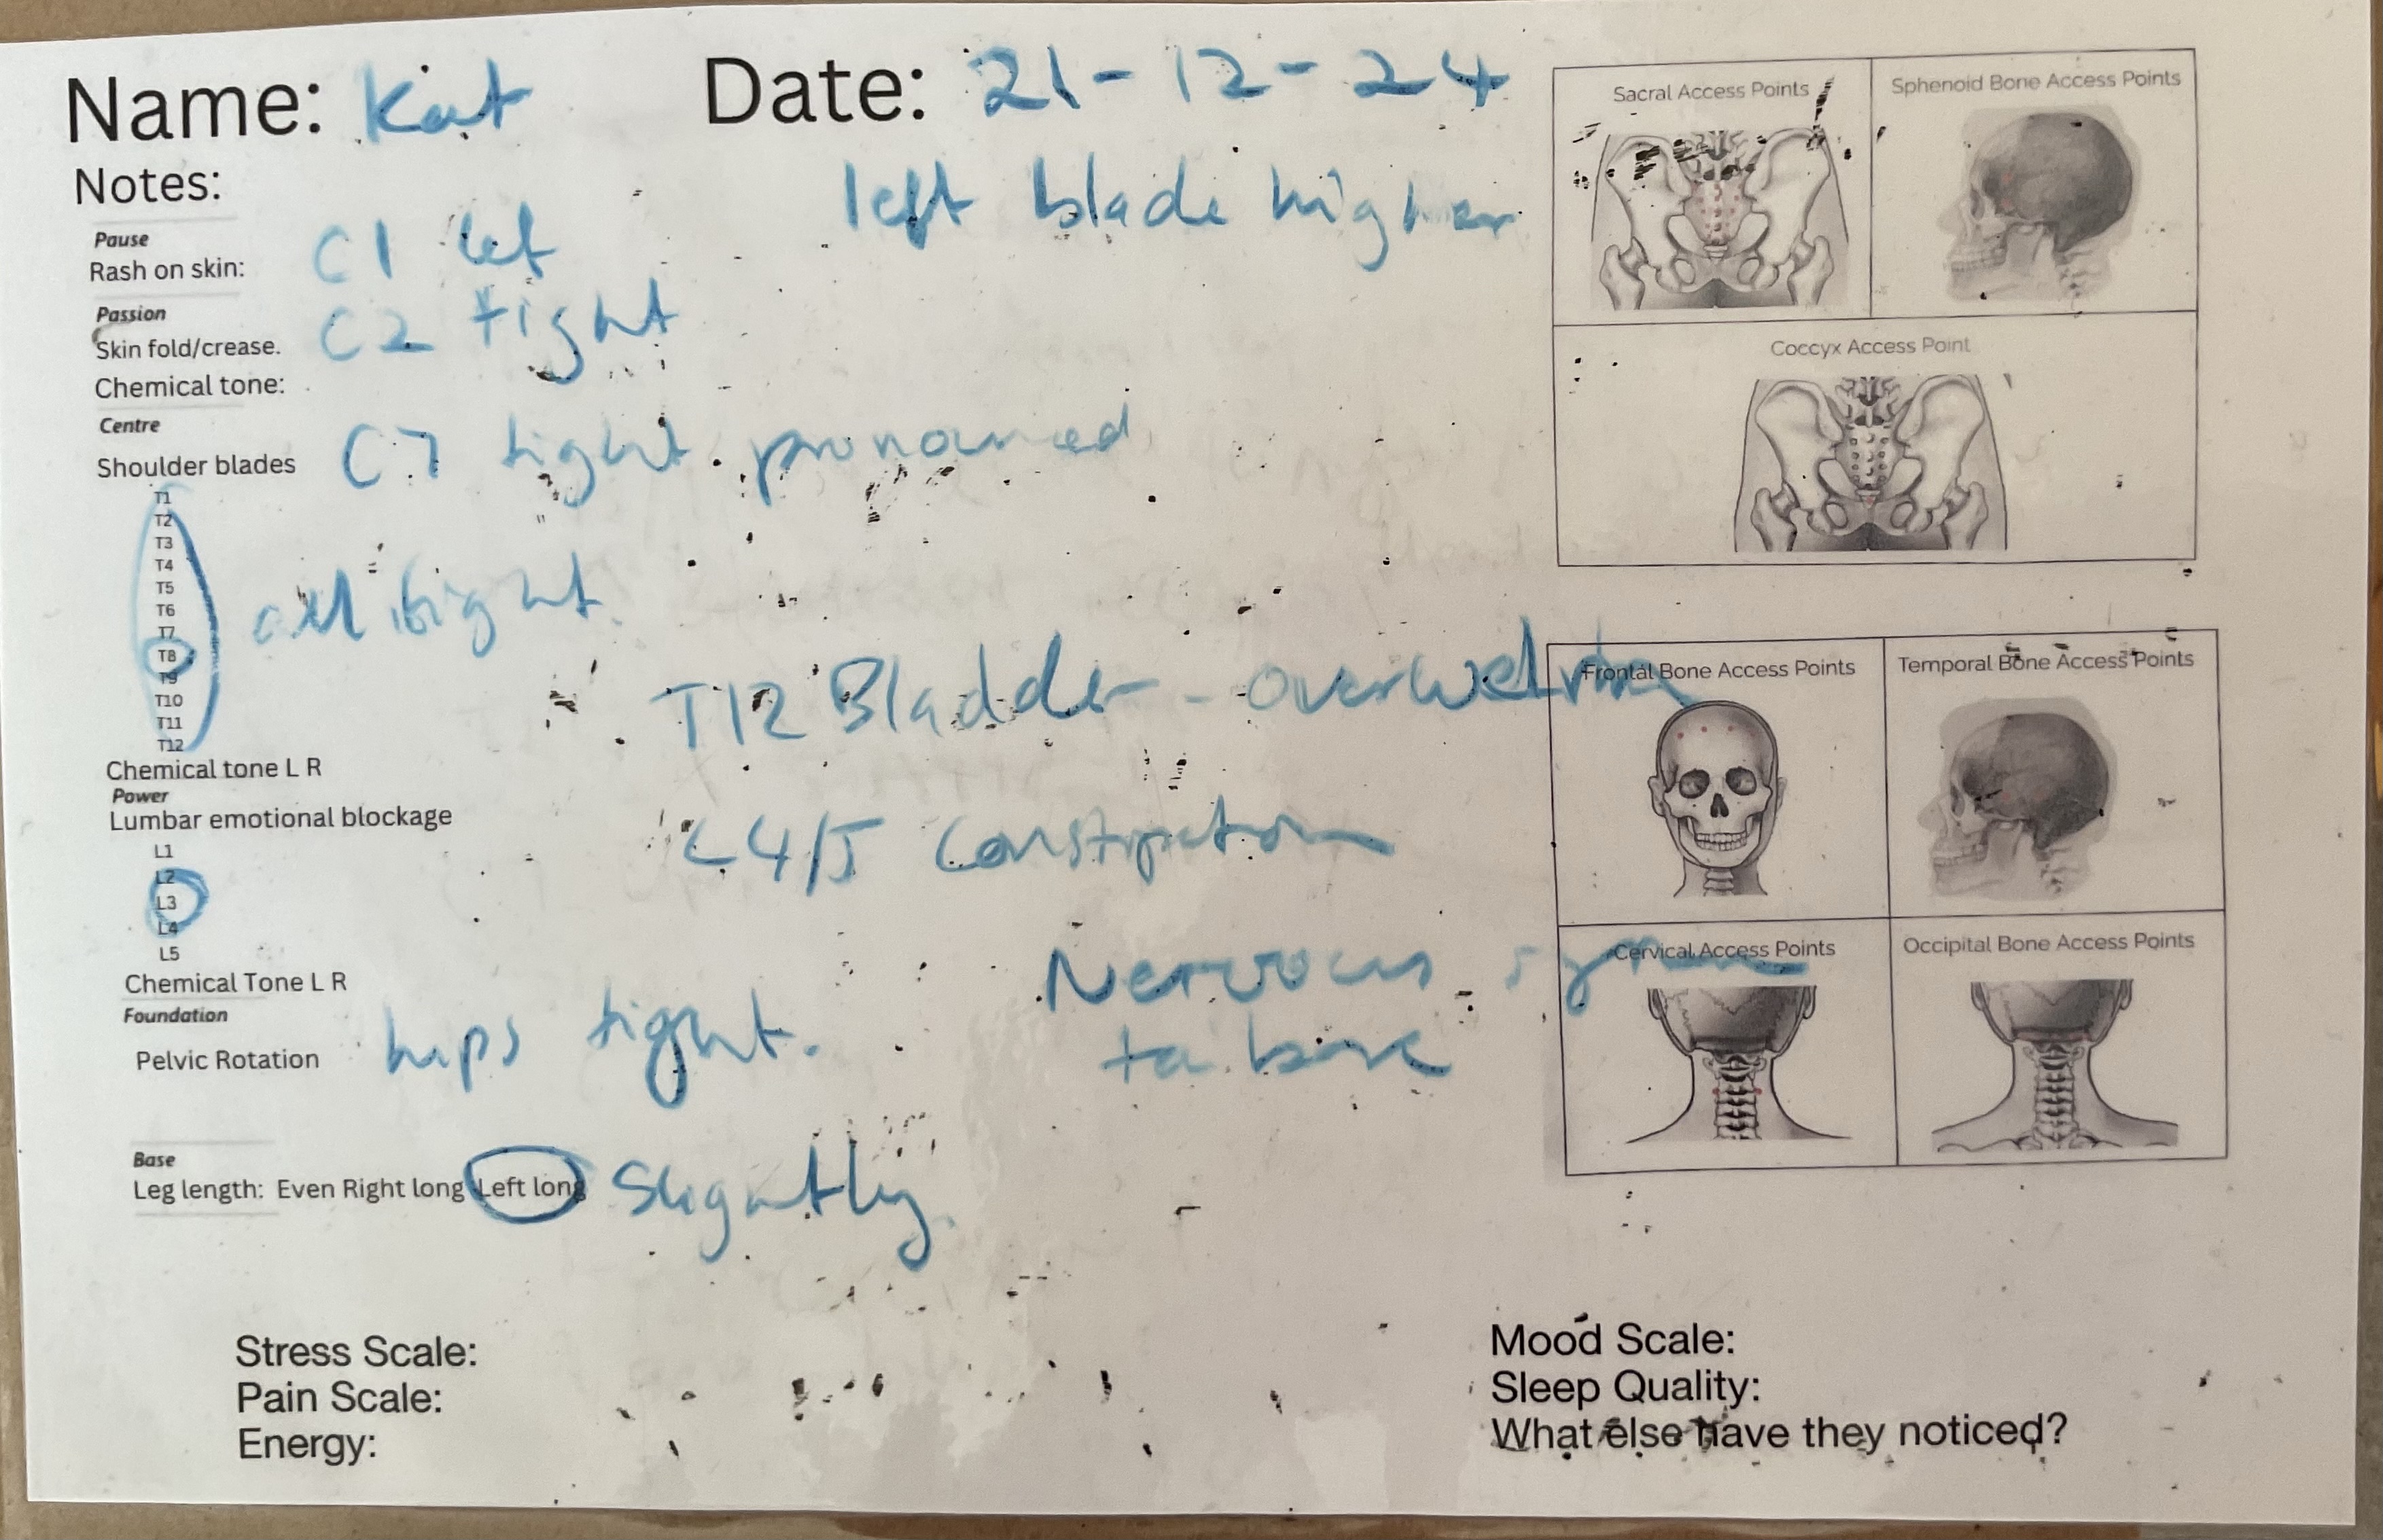 Name: Kat Date: 21-12-24
Notes: left blade higher
Pause
Rash on skin: C1 lef
Passion C2 tight
Skin fold/crease.
Chemical tone:
Centre
Shoulder blades C7 tight pronounced
T1
T2
T3
T4
T5
T6 all tight
T7
T8
T9
T10 T12 Bladder - overwelm
T11
T12
Chemical tone L R
Power
Lumbar emotional blockage
L1 L4/5 Constipation
L2
L3
L4
L5
Chemical Tone L R Nervous
Foundation
Pelvic Rotation hips tight. to base
Base
Leg length: Even Right long Left long Slightly
Stress Scale:
Pain Scale:
Energy:
Sacral Access Points Sphenoid Bone Access Points
Coccyx Access Point
Frontal Bone Access Points Temporal Bone Access Points
Cervical Access Points Occipital Bone Access Points
Mood Scale:
Sleep Quality:
What else have they noticed?